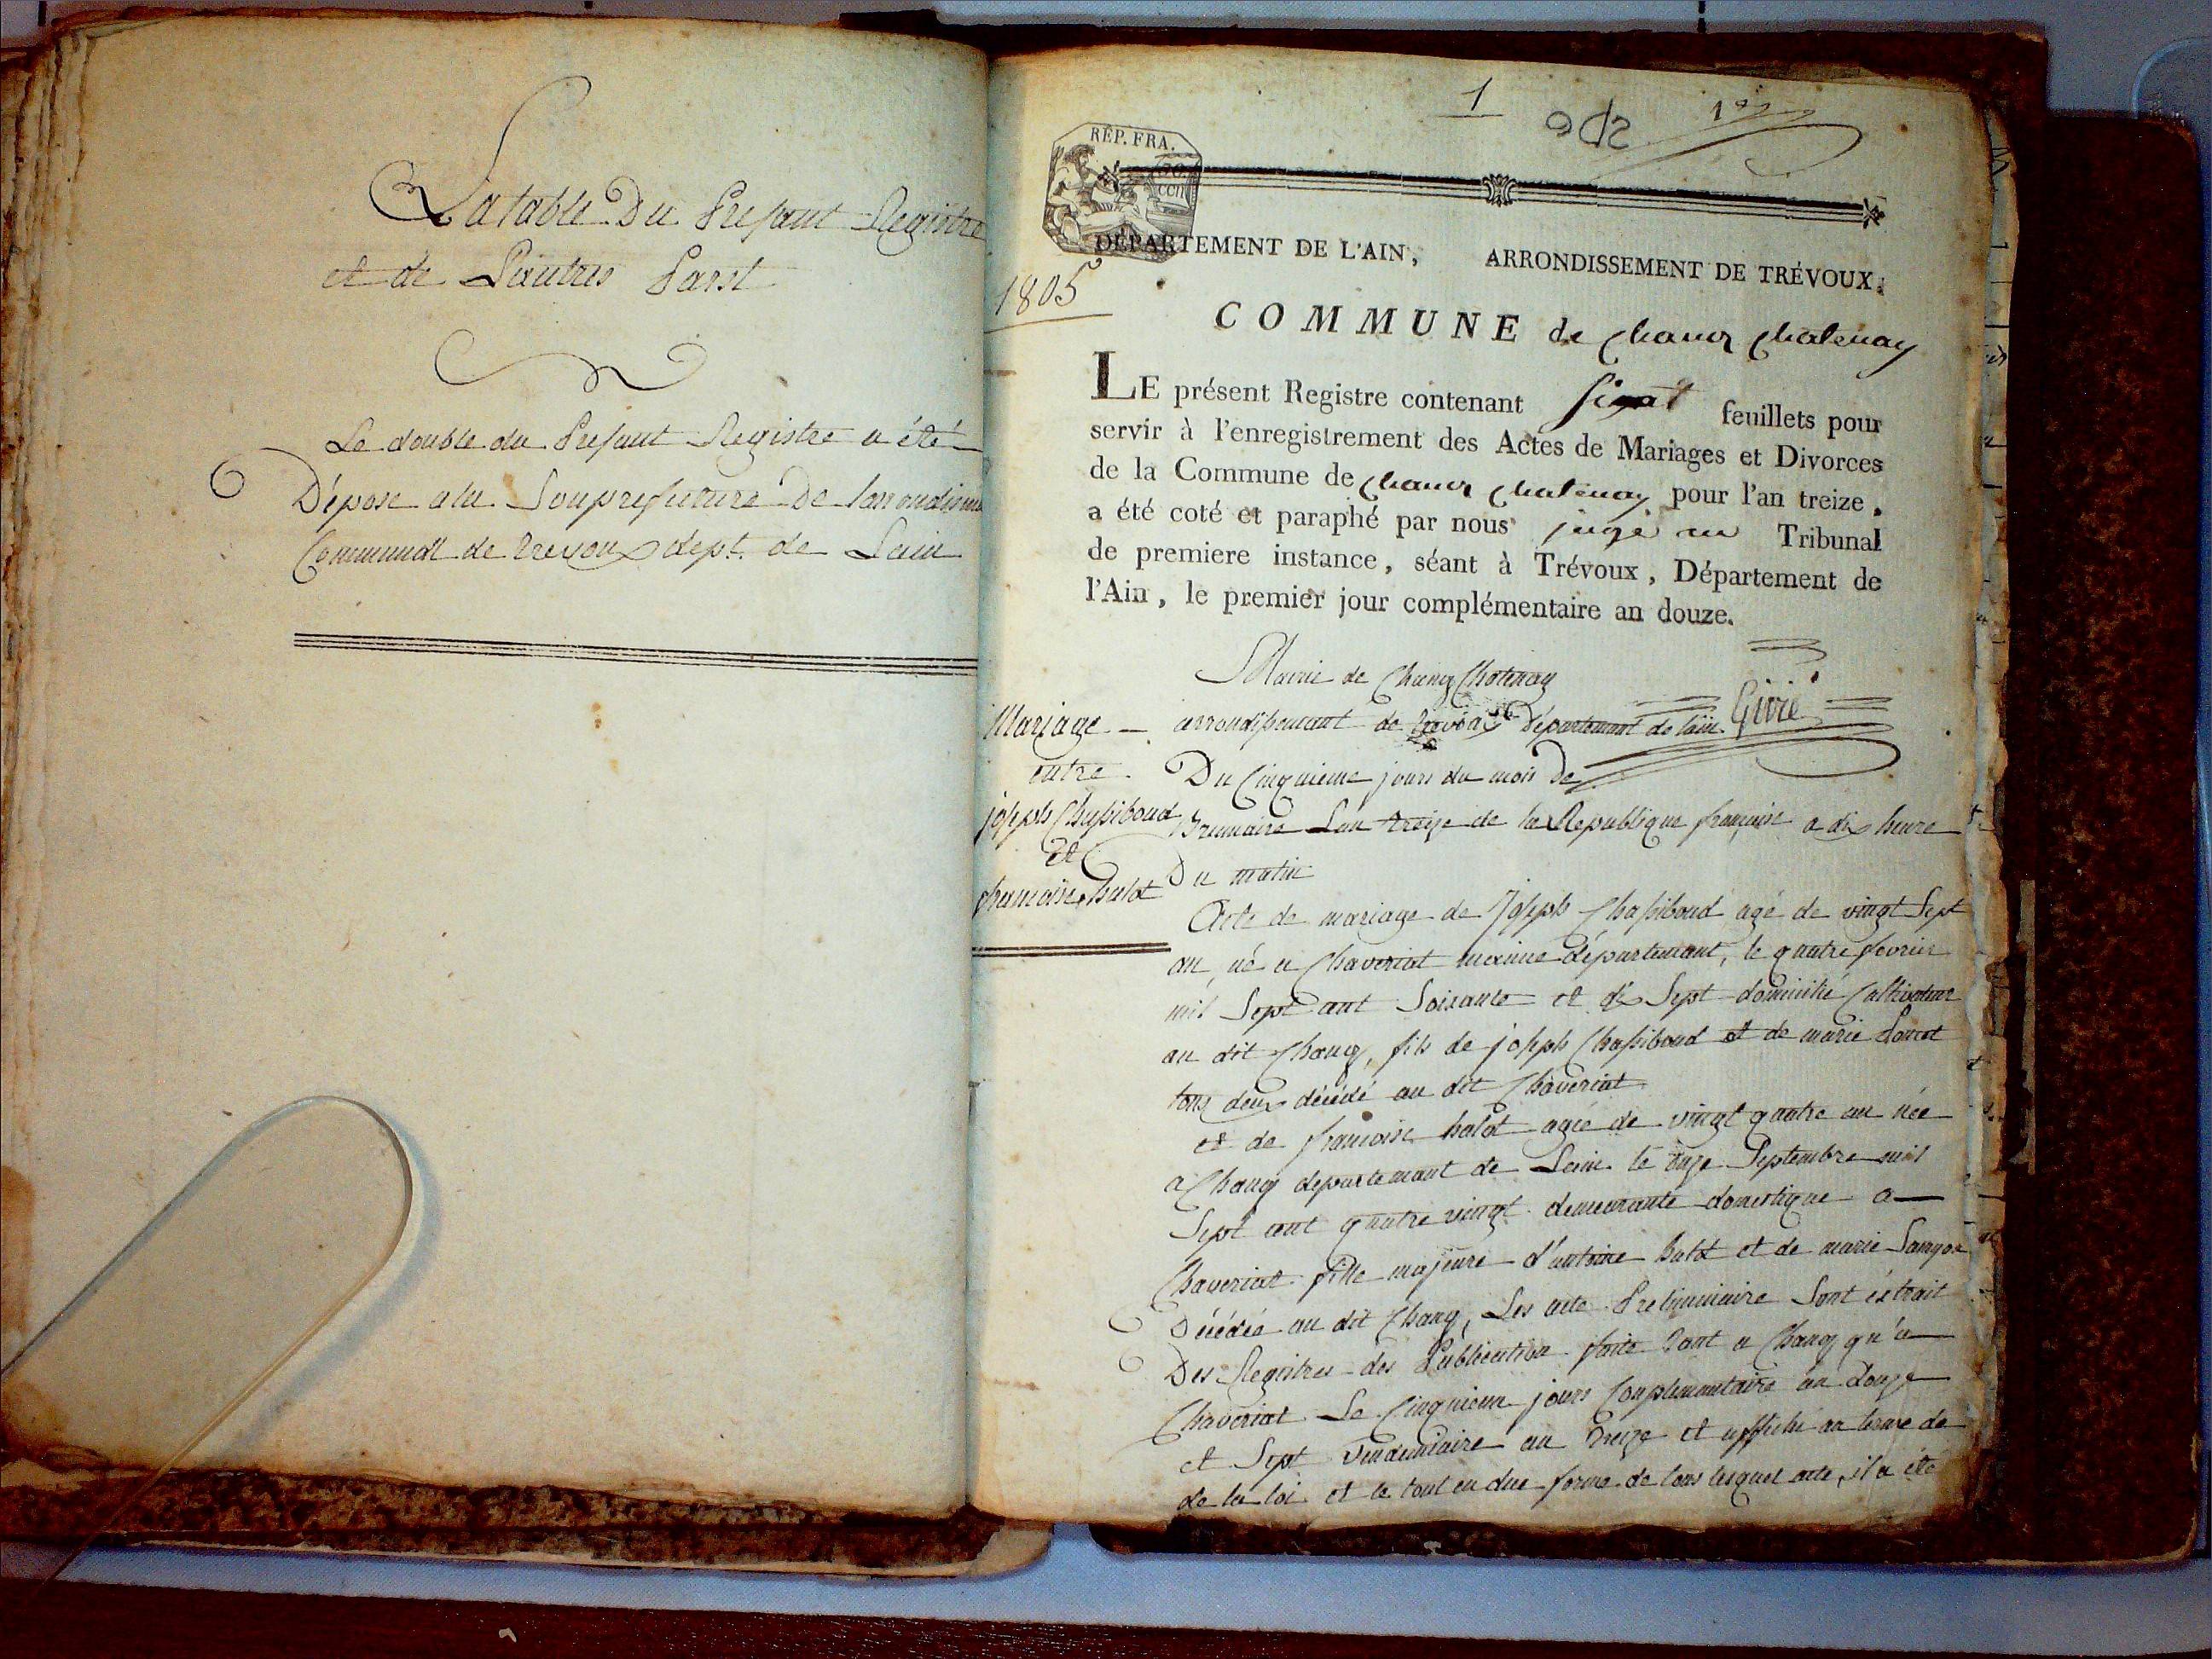 La table Du Presant Registre
et de Lautres Parst
Le double du Presant Registre a été
Déposé a la Souprefecture De larrondisme
Communall de trevoux dept. de Lain
1
1er
RÉP. FRA.
DÉPARTEMENT DE L'AIN, ARRONDISSEMENT DE TRÉVOUX.
1805
COMMUNE de chanoz chatenay
LE présent Registre contenant feuillets pour
servir à l'enregistrement des Actes de Mariages et Divorces
de la Commune de chanoz chatenay pour l'an treize,
a été coté et paraphé par nous juge au Tribunal
de premiere instance, séant à Trévoux, Département de
l'Ain, le premier jour complémentaire an douze.
Mairie de Chanoz Chatenay
arrondissemant de trevoux Département de lain
Du Cinquieme jours du mois de
Brumaire Lan treize de la Republique française a dix heure
Du matin
Mariage
entre
joseph Chassiboud
et
francoise halot
Acte de mariage de Joseph Chassiboud agé de vingt Sept
an né a Chaveriat meme département, le quatre fevrier
mil Sept cent Soisante et dix Sept domicilié Cultivateur
au dit Chanoz, fils de joseph Chassiboud et de marie
tous deux décédé au dit Chaveriat
et de francoise halot agée de vingt quatre an née
a Chanoz departemant de Lain le onze Septembre mil
Sept cent quatre vingt demeurante domestique a
Chaveriat fille majeure d'antoine halot et de marie
Décédée au dit Chanoz, Les acte Preliminaire Sont éxtrait
Des Registres des Publication faite tant a Chanoz qu'a
Chaveriat Le Cinquieme jours Complementaire an douze
et Sept vendemiaire an treize et affiché au terme de
de la loi et le tout en due forme de tous lesquel acte, il a été